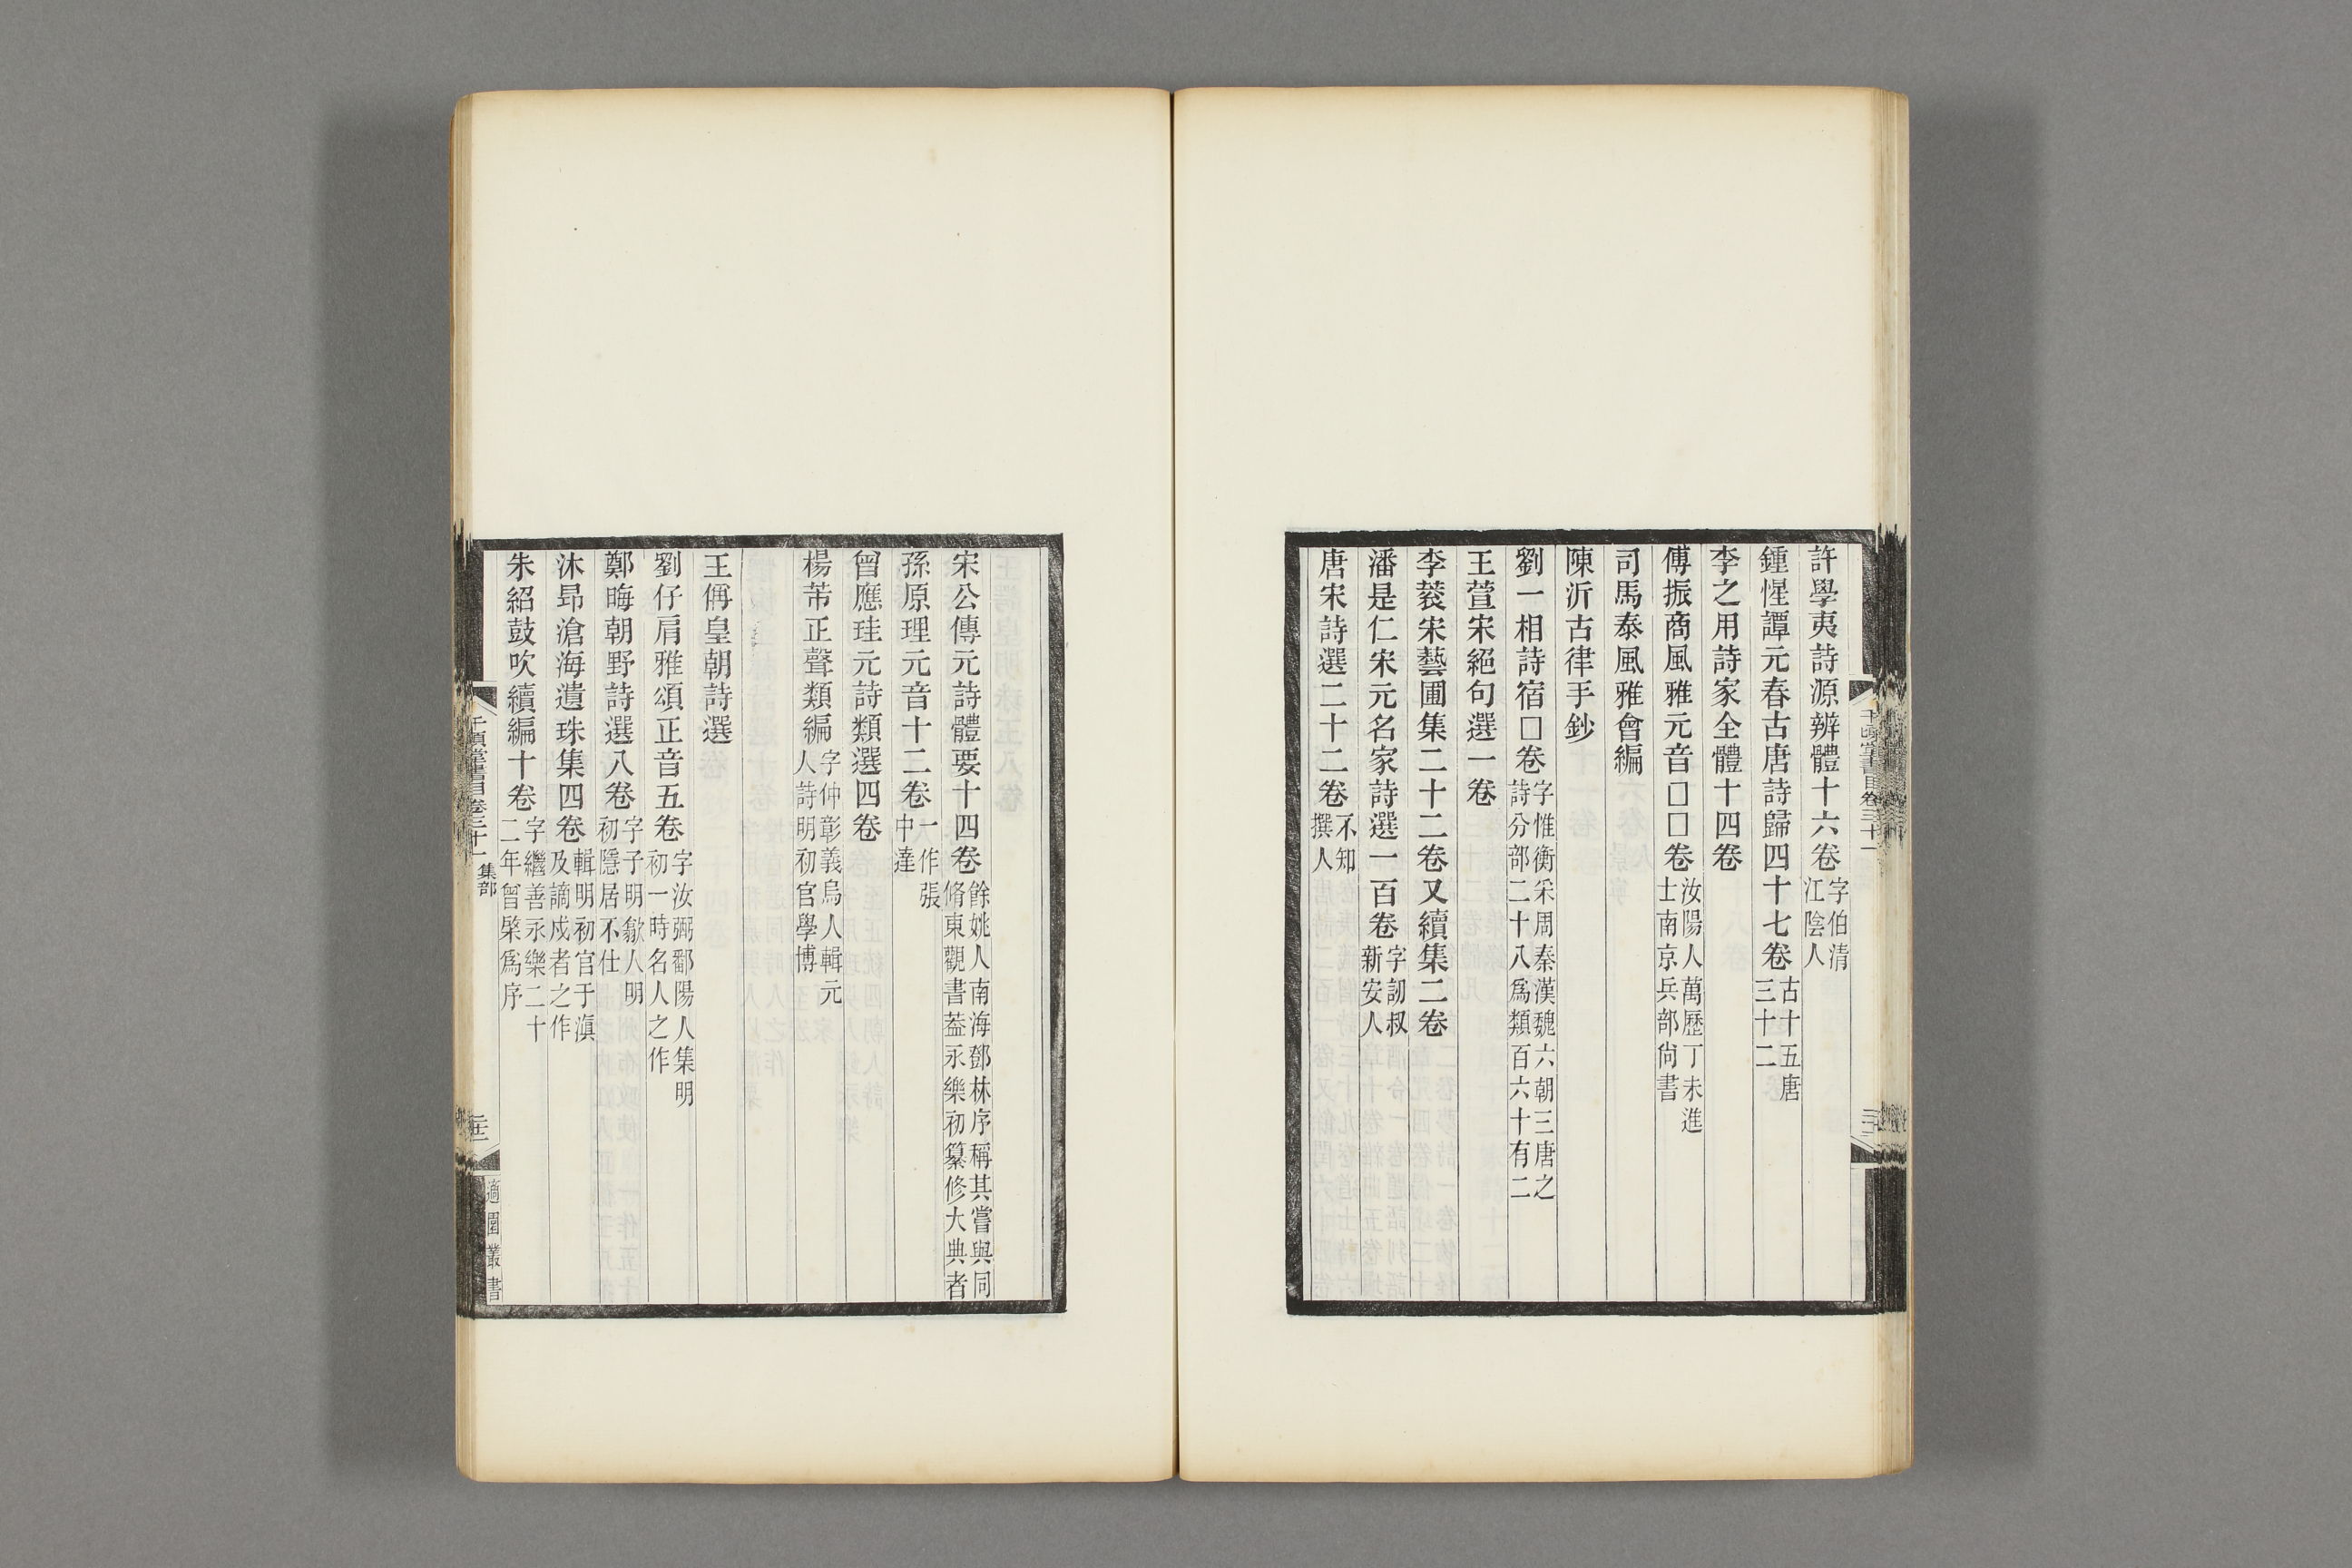 許學夷詩源辨體十六卷字伯清江陰人
鍾惺譚元春古唐詩歸四十七卷古十五唐三十二
李之用詩家全體十四卷
傅振商風雅元音□□卷汝陽人萬歷丁未進士南京兵部尙書
司馬泰風雅會編
陳沂古律手鈔
劉一相詩宿□卷字惟衡采周秦漢魏六朝三唐之詩分部二十八爲類百六十有二
王萱宋絕句選一卷
李蓘宋藝圃集二十二卷又續集二卷
潘是仁宋元名家詩選一百卷字訒叔新安人
唐宋詩選二十二卷不知撰人
宋公傳元詩體要十四卷餘姚人南海鄧林序稱其嘗與同脩東觀書葢永樂初纂修大典者
孫原理元音十二卷一作張中達
曾應珪元詩類選四卷
楊芾正聲類編字仲彰義烏人輯元人詩明初官學博
王偁皇朝詩選
劉仔肩雅頌正音五卷字汝弼鄱陽人集明初一時名人之作
鄭晦朝野詩選八卷字子明歙人明初隱居不仕
沐昂滄海遺珠集四卷輯明初官于滇及謫戍者之作
朱紹鼓吹續編十卷字繼善永樂二十二年曾棨爲序
千頃堂書目卷三十一 集部
適園叢書